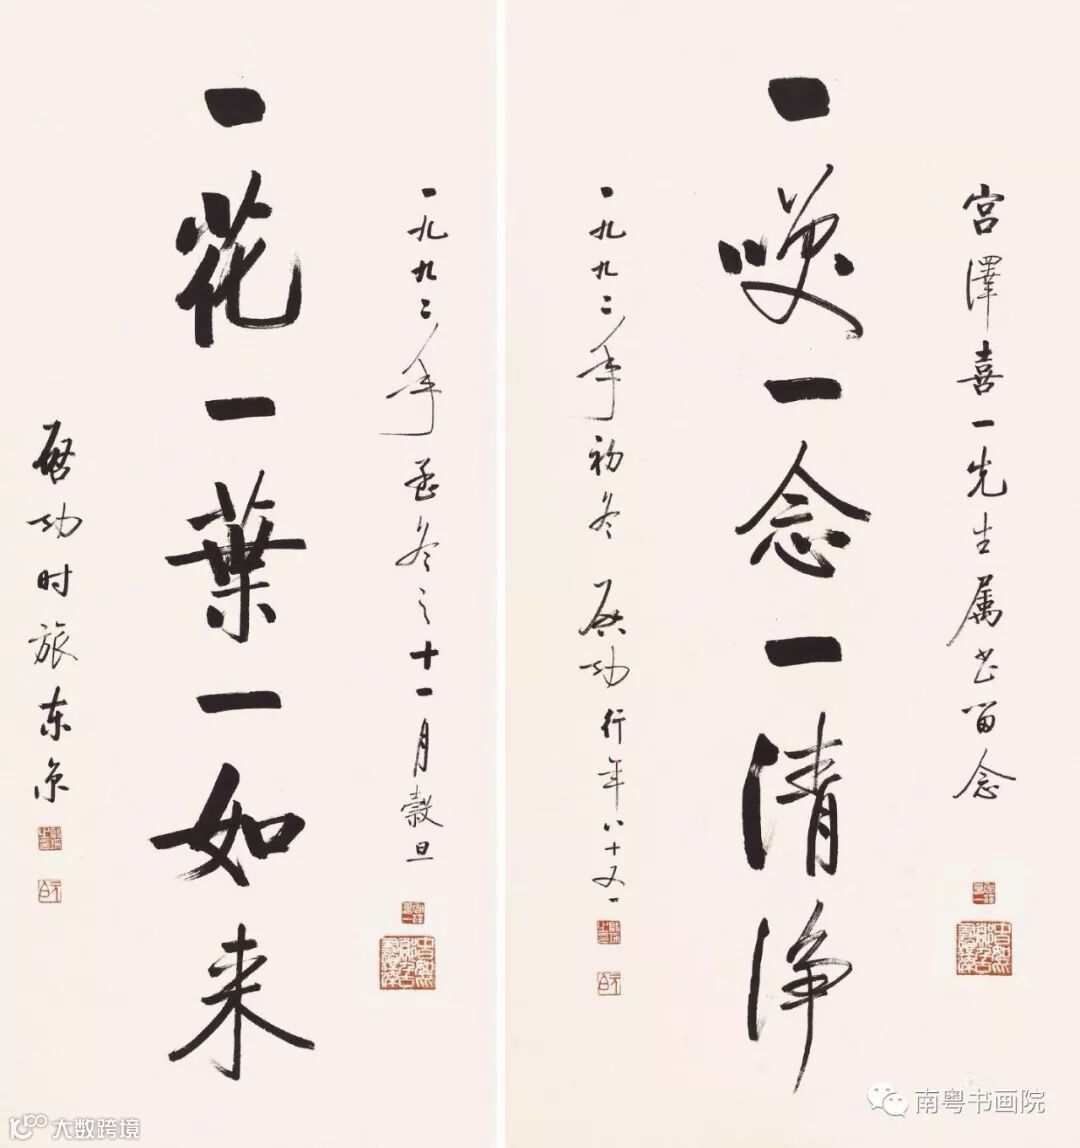 宫澤喜一先生属书留念
一咲一念一清淨
一九九二年初冬启功行年八十又一
一九九二年孟冬之十一月榖旦
一花一葉一如来
启功时旅东京
南粤书画院
大数跨境